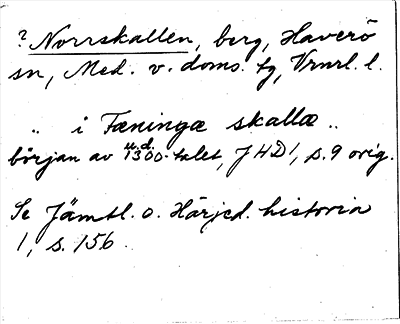 ? Norrskallen, berg, Haverö
sn, Med. v. doms. tg, Vrnrl. l.
.. i Fæningæ skallæ ..
början av 1300-talet, JHD1, s. 9 orig.
u.d.
Se Jämtl. o. Härjed. historia
1, s. 156